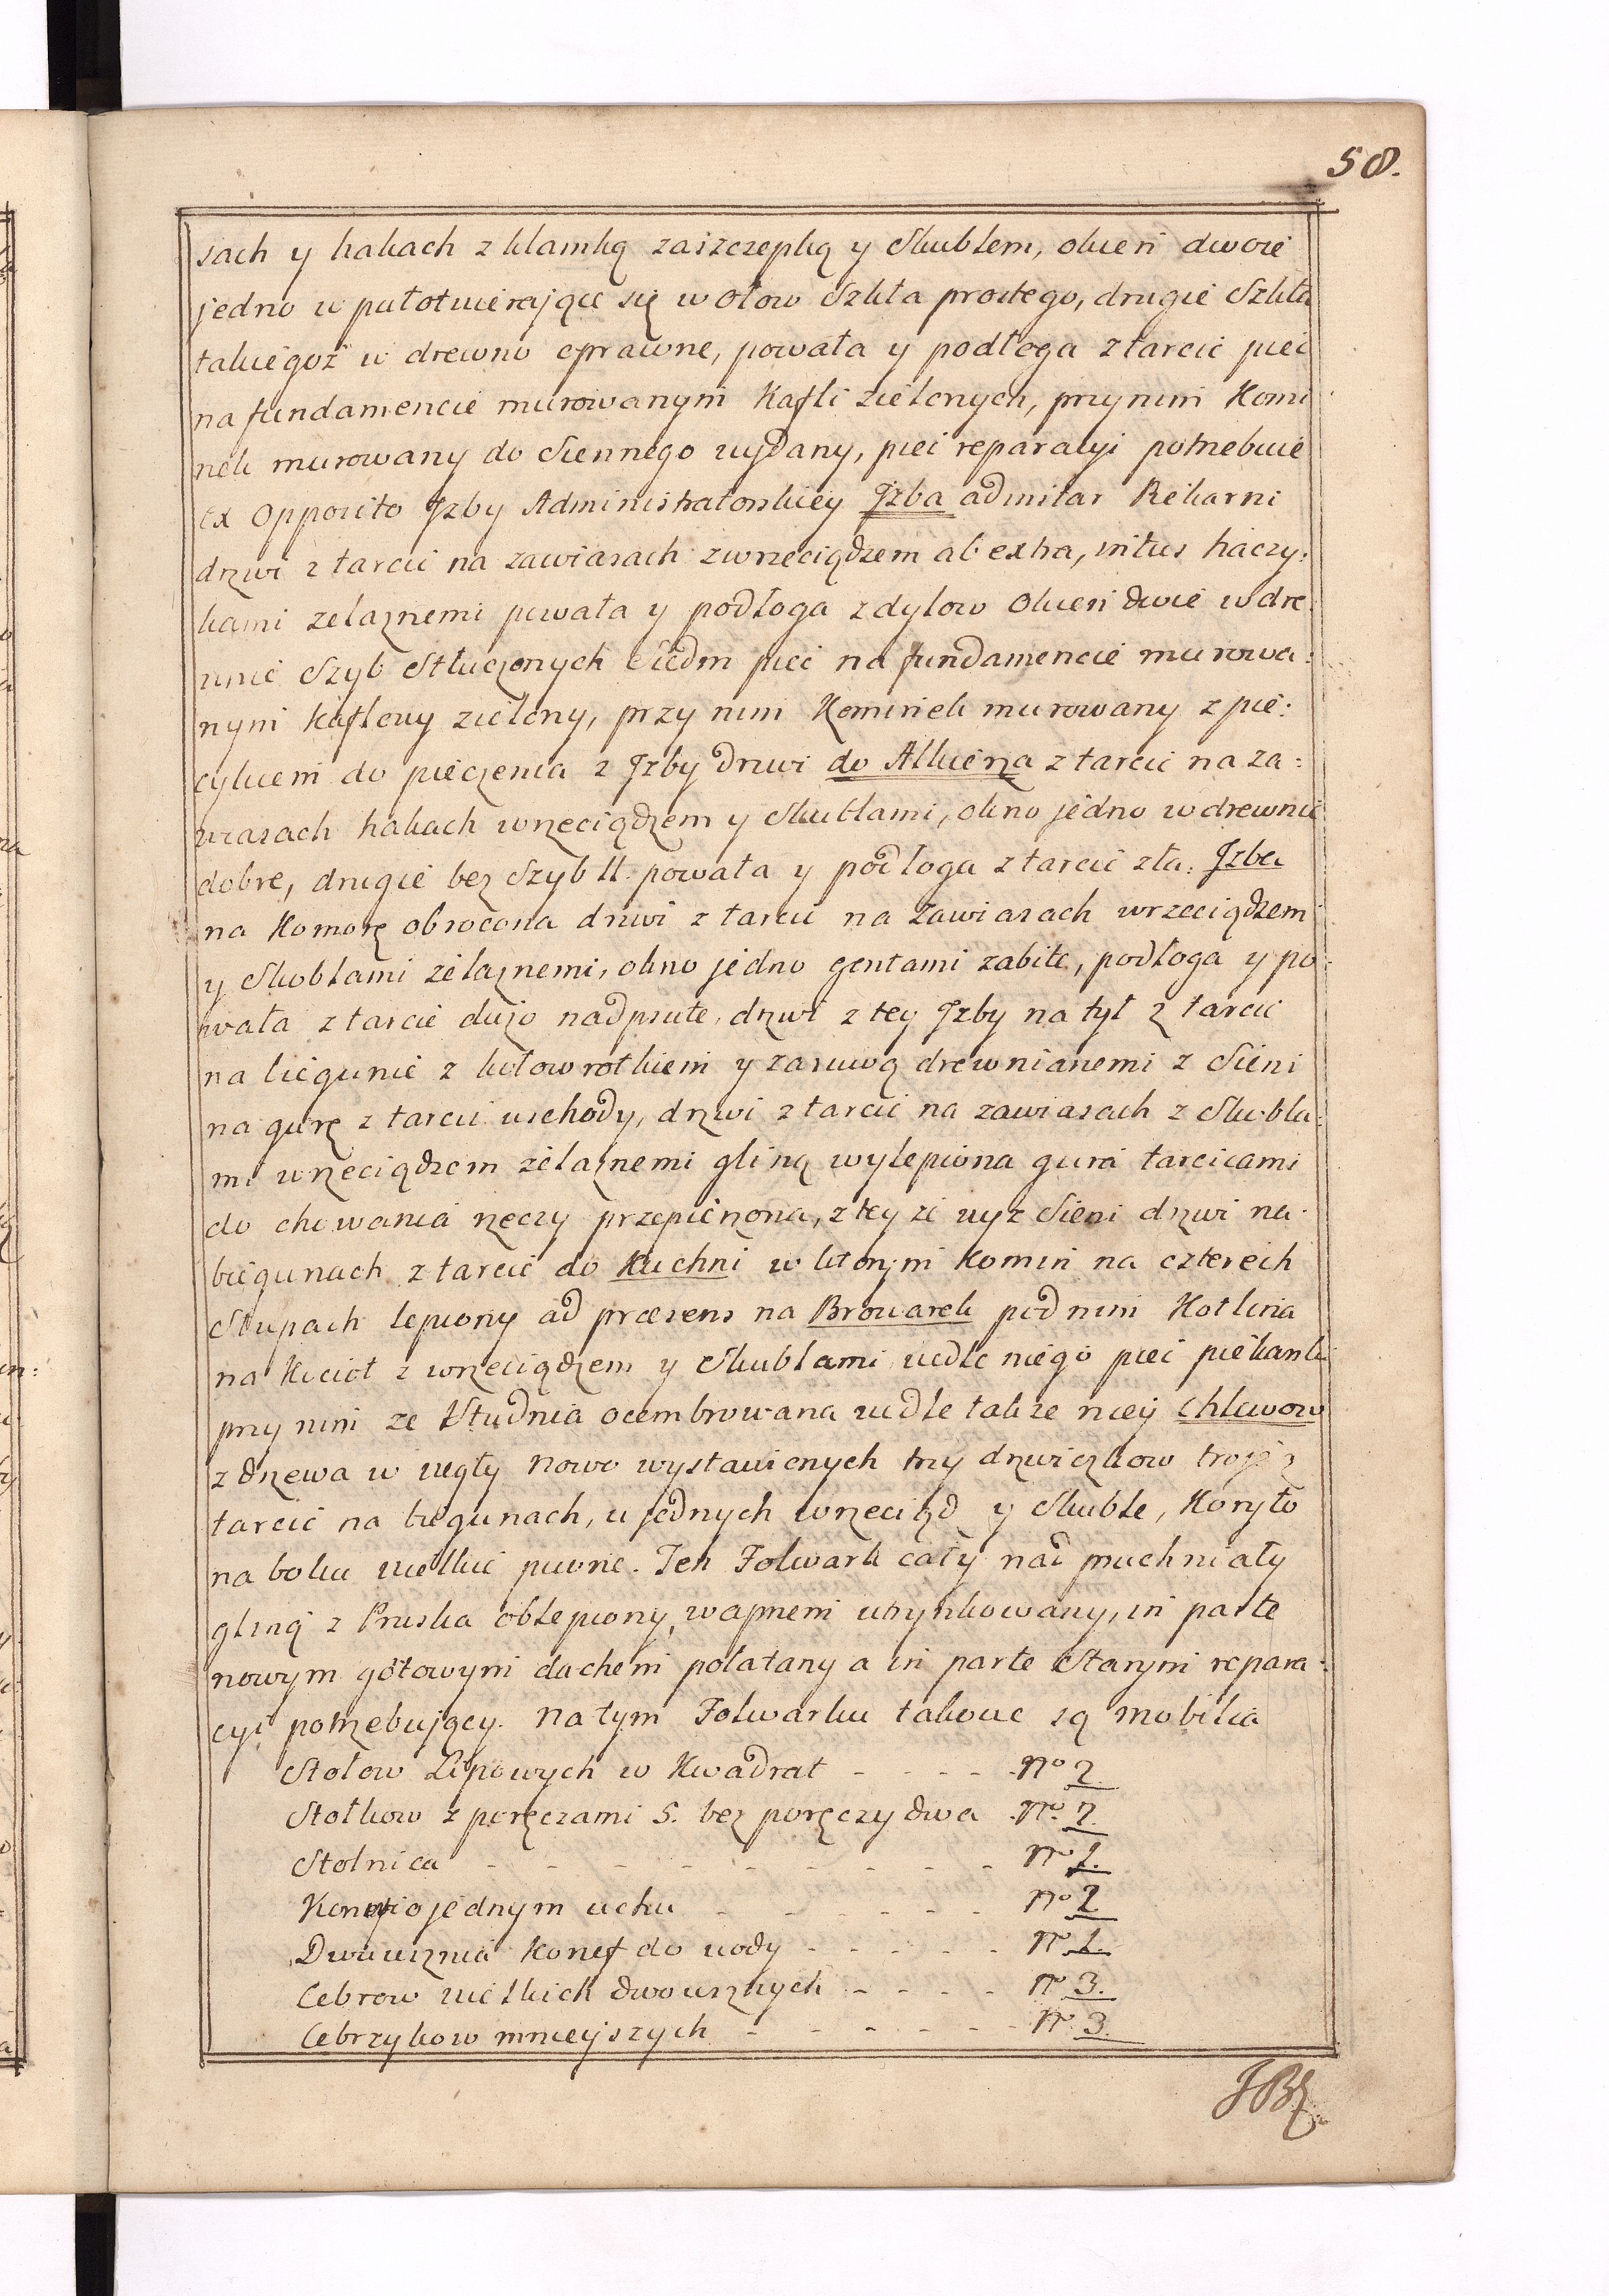 58.
sach y hakach z klamką zaszczepką y Skublem, okien dwoie
jedno w pułotwierające się w ołow Szkła prostego, drugie Szkła
takiegoż w drewno oprawne, powała y podłoga z tarcic piec
na fundamencie murowanym Kafli zielonych, przy nim Komi
nek murowany do Siennego wydany, piec reparacyi potrzebuie
ex Opposito Jzby Administratorskiey Jzba admitar Pekarni
drzwi z tarcic na zawiasach z wrzeciądzem ab extra, intus haczy:
kami zelaznemi powała y podłoga z dylow Okien dwie w dre
wnie Szyb Stłuczonych siedm piec na fundamencie murowa:
nym kaflowy zielony, przy nim Kominek murowany z pie:
cykiem do pieczenia z Jzby drzwi do Alkierza z tarcic na za:
wiasach hakach wrzeciądzem y Skublami, okno jedno w drewnie
dobre, drugie bez Szyb 11. powała y podłoga z tarcic zła. Jzba
na Komorę obrocona drzwi z tarcic na zawiasach wrzeciądzem
y Skoblami żelaznemi, okno jedno gontami zabite, podłoga y po:
wała z tarcic dużo nadpsute, drzwi z tey Jzby na tył z tarcic
na biegunie z kołowrotkiem y zasuwą drewnianemi z Sieni
na gurę z tarcic wschody, drzwi z tarcic na zawiasach z Skubla:
mi wrzeciądzem żelaznemi gliną wylepiona gura tarcicami
do chowania rzeczy przepierzona, z tey że wyz Sieni drzwi na
biegunach z tarcic do Kuchni w ktorym Komin na czterech
Słupach lepiony ad præsens na Browarek pod nim Kotlina
na Kocioł z wrzeciądzem y Skublami wedle niego piec piekarski
przy nim ze Studnia ocembrowana wedle takze niey Chlewow
z drzewa w węgły nowo wystawionych trzy drzwiczkow troje z
tarcic na biegunach, u jednych wrzeciąd y Skuble, Koryto
na boku wielkie piwne. Ten Folwark cały nad pruchniały
gliną z Pruska oblepiony, wapnem utynkowany, in parte
nowym gotowym dachem połatany a in parte Starym repara:
cyi potrzebujący. Na tym Folwarku takowe są mobilia
Stołow Lipowych w Kwadrat - - - - No 2.
Stołkow z poręczami 5. bez poręczy dwa No. 7.
Stolnica - - - - - - - - No 1.
Konwi o jednym uchu - - - - - No 2
Dwuuszna Konef do wody - - - - - No 1.
Cebrow wielkich dwousznych - - - - No 3.
Cebrzykow mnieyszych - - - - - - No 3.